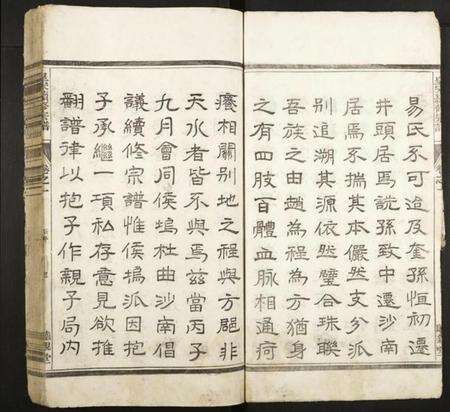 易氏不可追及奎孫恒初遷
井頭居焉說孫致中遷沙南
居焉不揣其本儼然支分派
別追溯其源依然璧合珠聯
吾族之由趙為程為方猶身
之有四肢百體血脈相通疴
癢相關別地之程與方郡非
天水者皆不與焉茲當丙子
九月會同侯塢杜曲沙南倡
議續修宗譜惟侯塢派因抱
子承繼一項私存意見欲推
翻譜律以抱子作親子局內